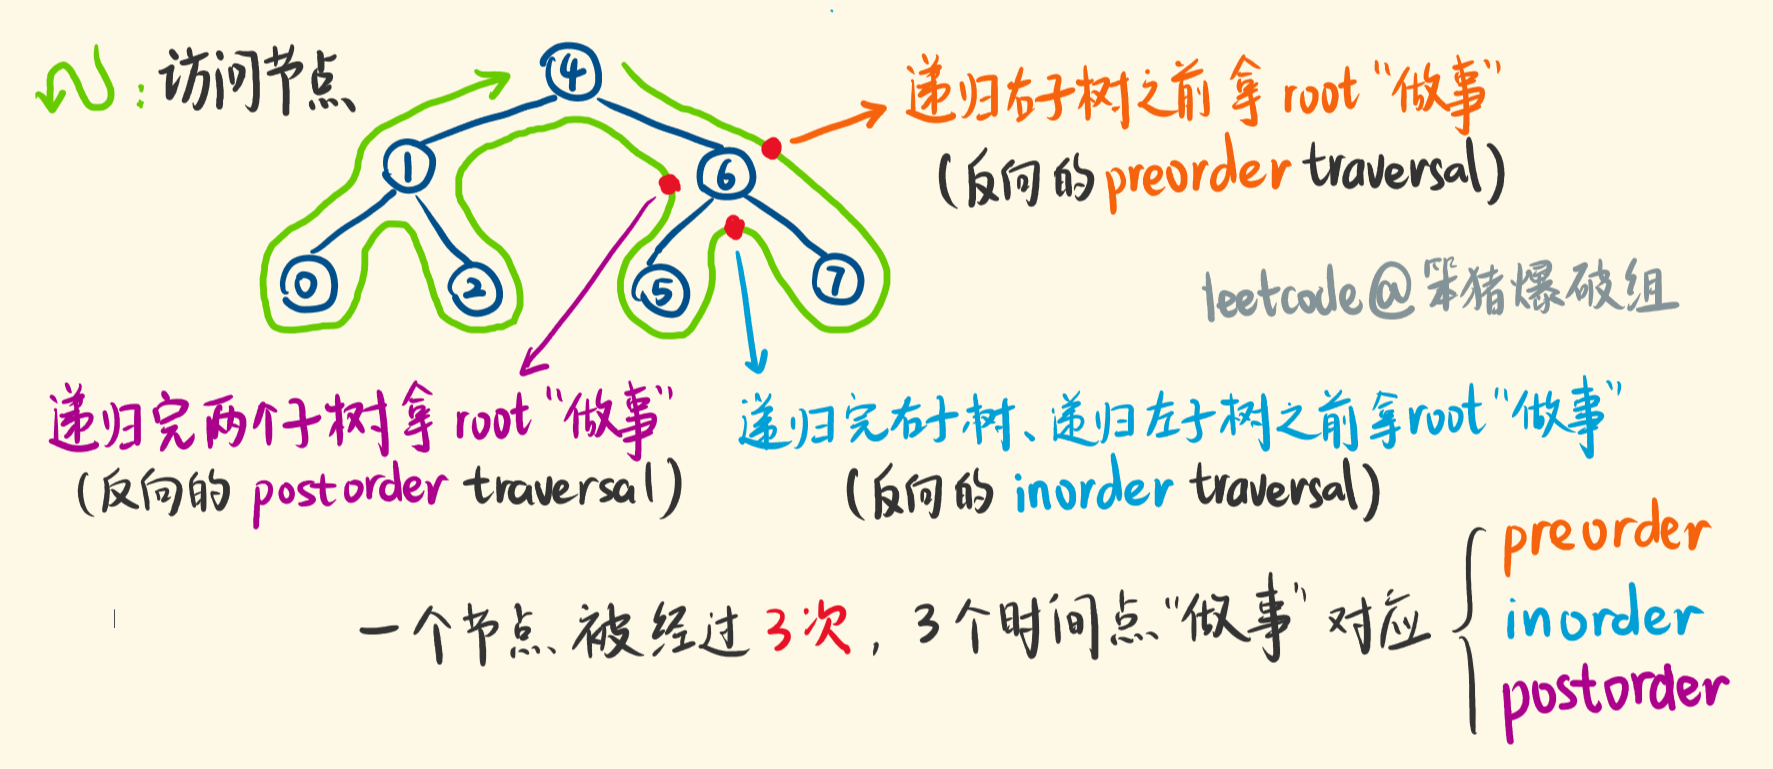 : 访问节点
4
1
6
0
2
5
7
递归右子树之前拿 root “做事”
(反向的 preorder traversal)
leetcode@笨猪爆破组
递归完两个子树拿 root “做事”
(反向的 postorder traversal)
递归完右子树、递归左子树之前拿 root “做事”
(反向的 inorder traversal)
一个节点被经过 3次, 3个时间点“做事” 对应
preorder
inorder
postorder